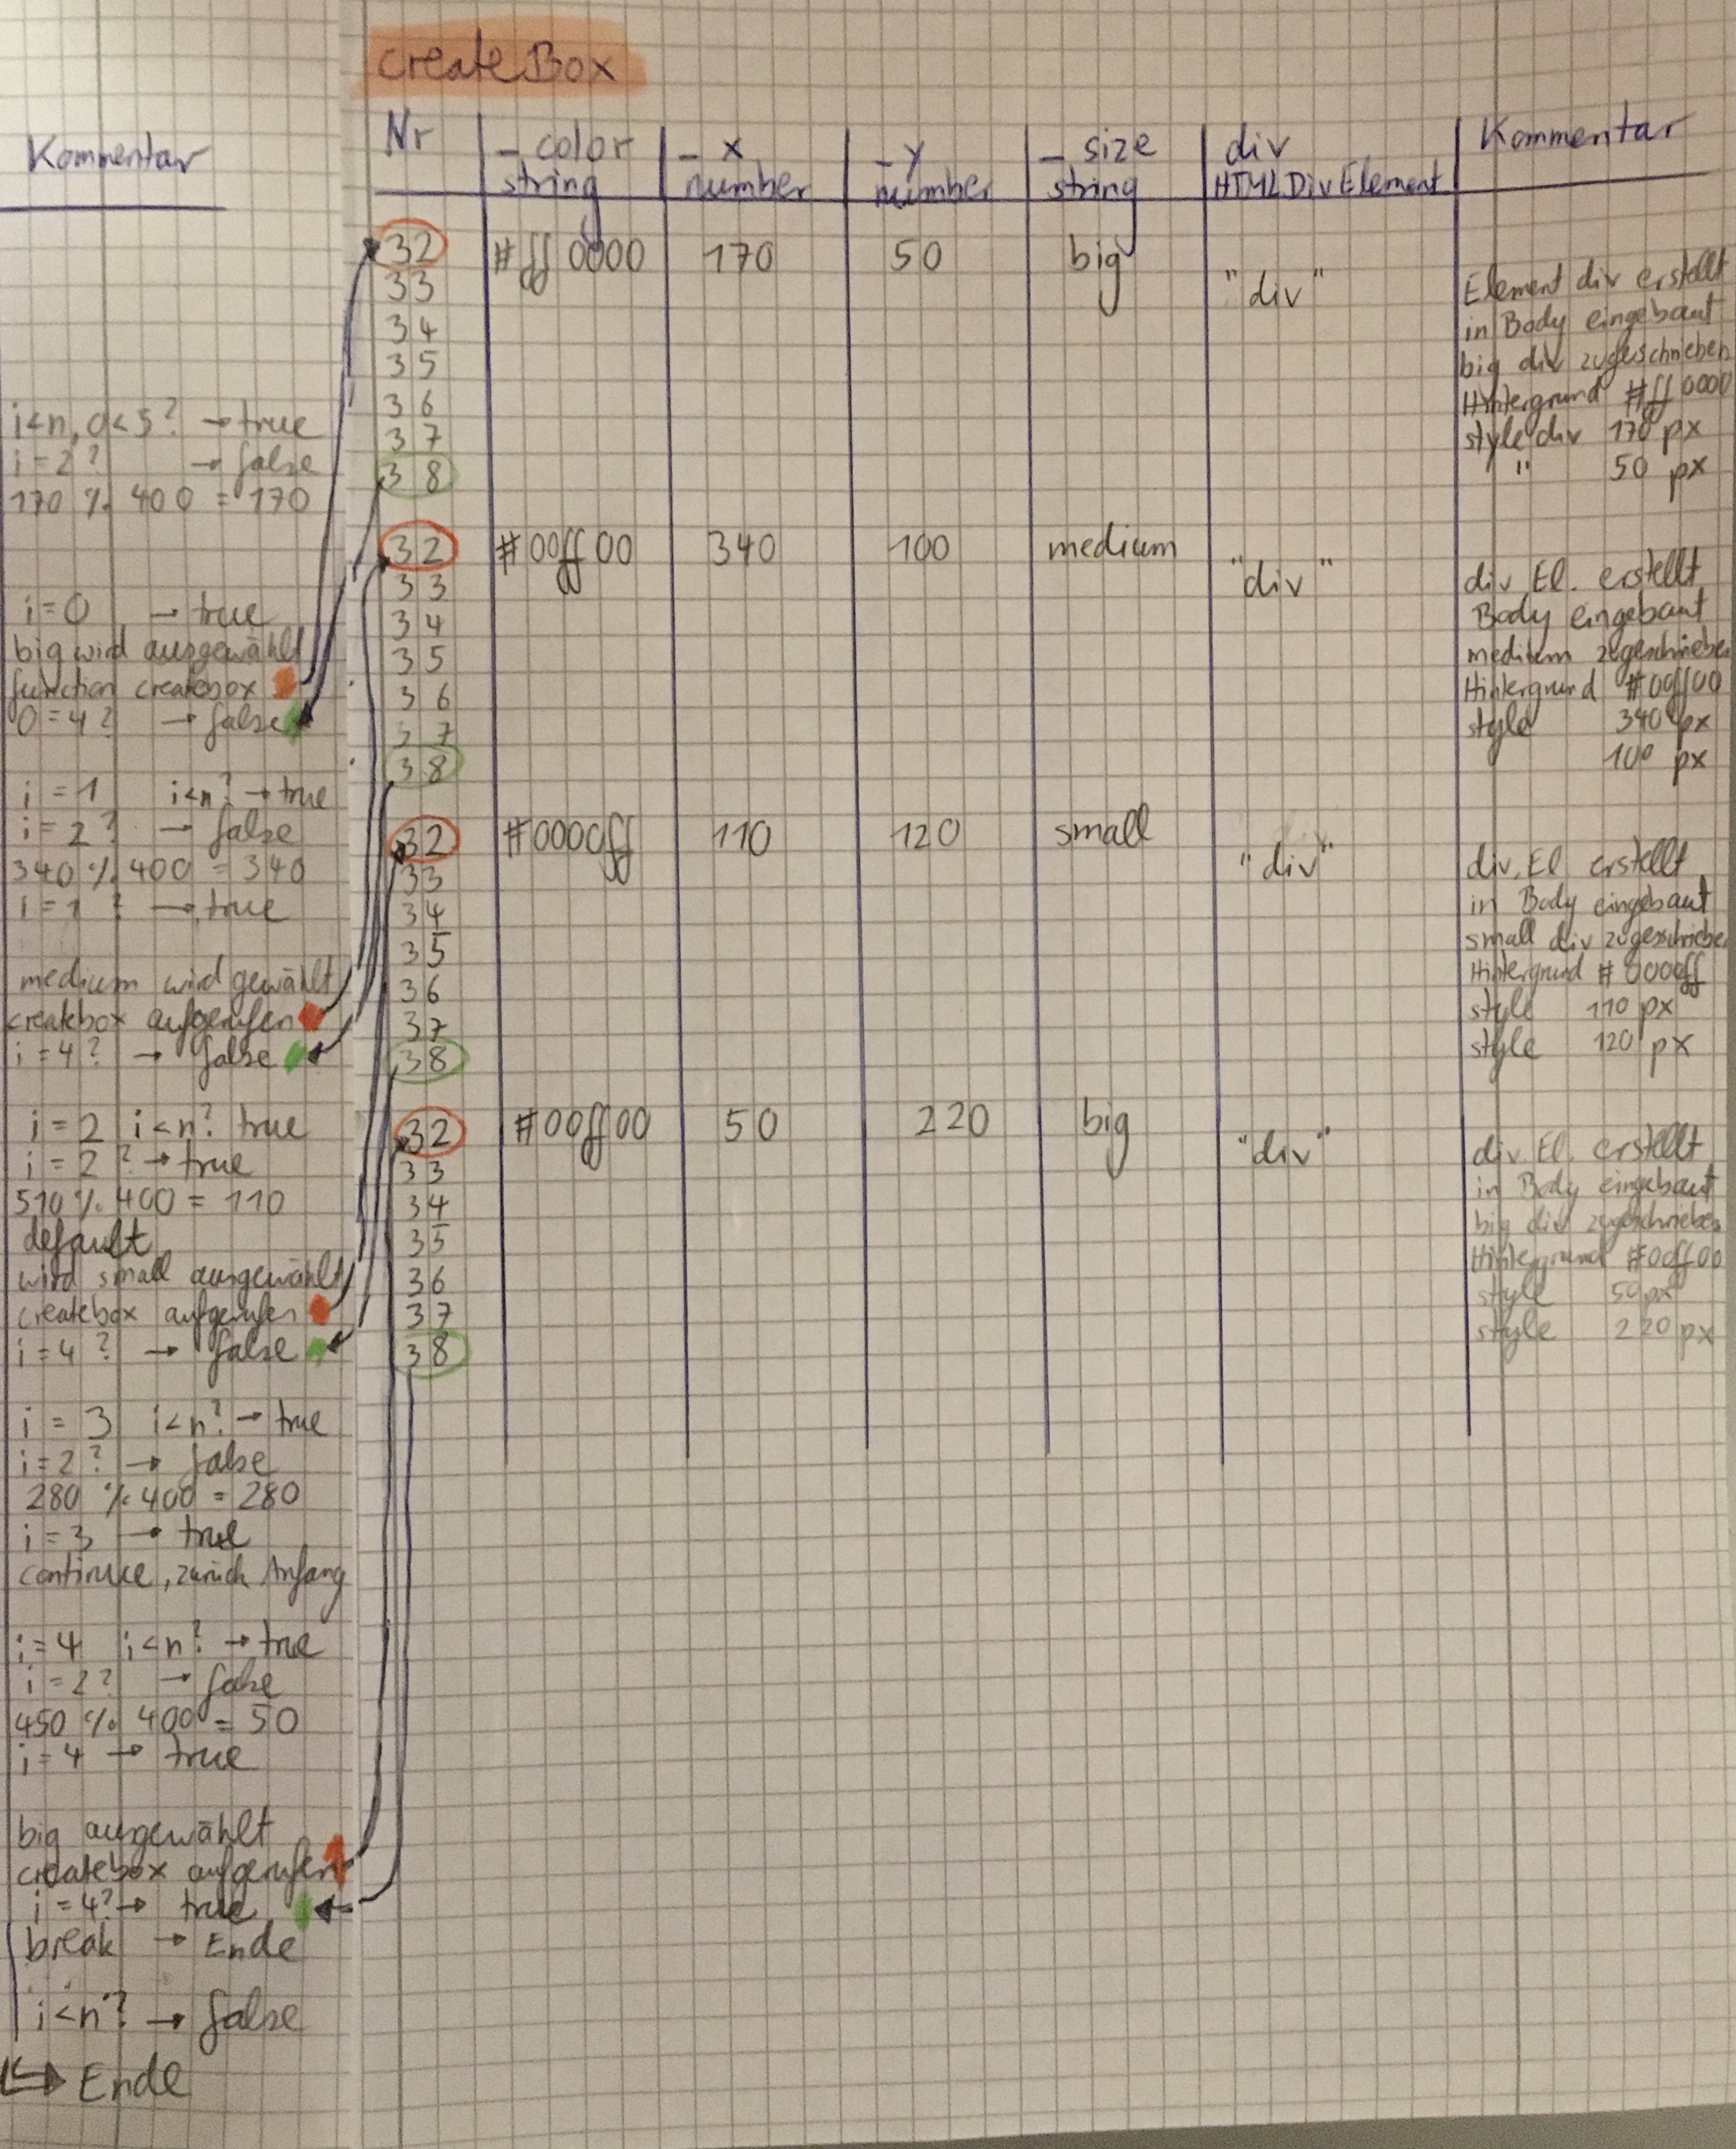 createBox
Kommentar
i<n, 0<5? → true
i = 2? → false
170 % 400 = 170
i = 0 → true
big wird ausgewählt
function createbox
0 = 4? → false
i = 1 i<n? → true
i = 2? → false
340 % 400 = 340
i = 1 ? → true
medium wird gewählt
createbox aufgerufen
i = 4? → false
i = 2 i<n? true
i = 2 ? → true
510 % 400 = 110
default
wird small ausgewählt
createbox aufgerufen
i = 4 ? → false
i = 3 i<n? → true
i = 2? → false
280 % 400 = 280
i = 3 → true
continue, zurück Anfang
i = 4 i<n? → true
i = 2? → false
450 % 400 = 50
i = 4 → true
big ausgewählt
createbox aufgerufen
i = 4? → true
break → Ende
i<n? → false
Ende
Nr _color _x _y _size div Kommentar
string number number string HTMLDivElement
32 #ff0000 170 50 big
33 "div" Element div erstellt
34 in Body eingebaut
35 big div zugeschrieben
36 Hintergrund #ff0000
37 style div 170 px
38 " 50 px
32 #00ff00 340 100 medium
33 "div" div El. erstellt
34 Body eingebaut
35 medium zugeschrieben
36 Hintergrund #00ff00
37 style 340 px
38 100 px
32 #0000ff 110 120 small
33 "div" div. El erstellt
34 in Body eingebaut
35 small div zugeschrieben
36 Hintergrund #0000ff
37 style 110 px
38 style 120 px
32 #00ff00 50 220 big
33 "div" div El. erstellt
34 in Body eingebaut
35 big div zugeschrieben
36 Hintergrund #00ff00
37 style 50px
38 style 220 px